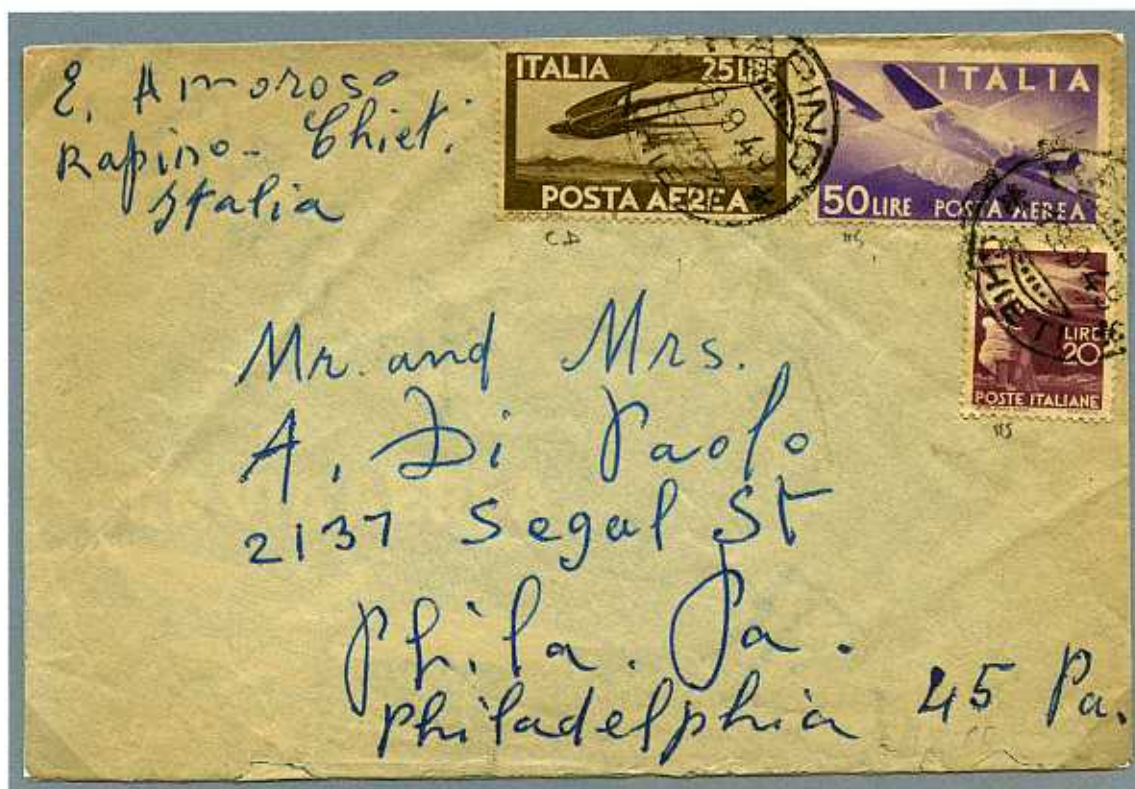 E. Amoroso
Rapino - Chiet.
Italia
ITALIA 25 LIRE
POSTA AEREA
ITALIA
50 LIRE POSTA AEREA
RAPINO
CHIETI
LIRE
20
POSTE ITALIANE
Mr. and Mrs.
A. Di Paolo
2137 Segal St
Phila. Pa.
Philadelphia 45 Pa.